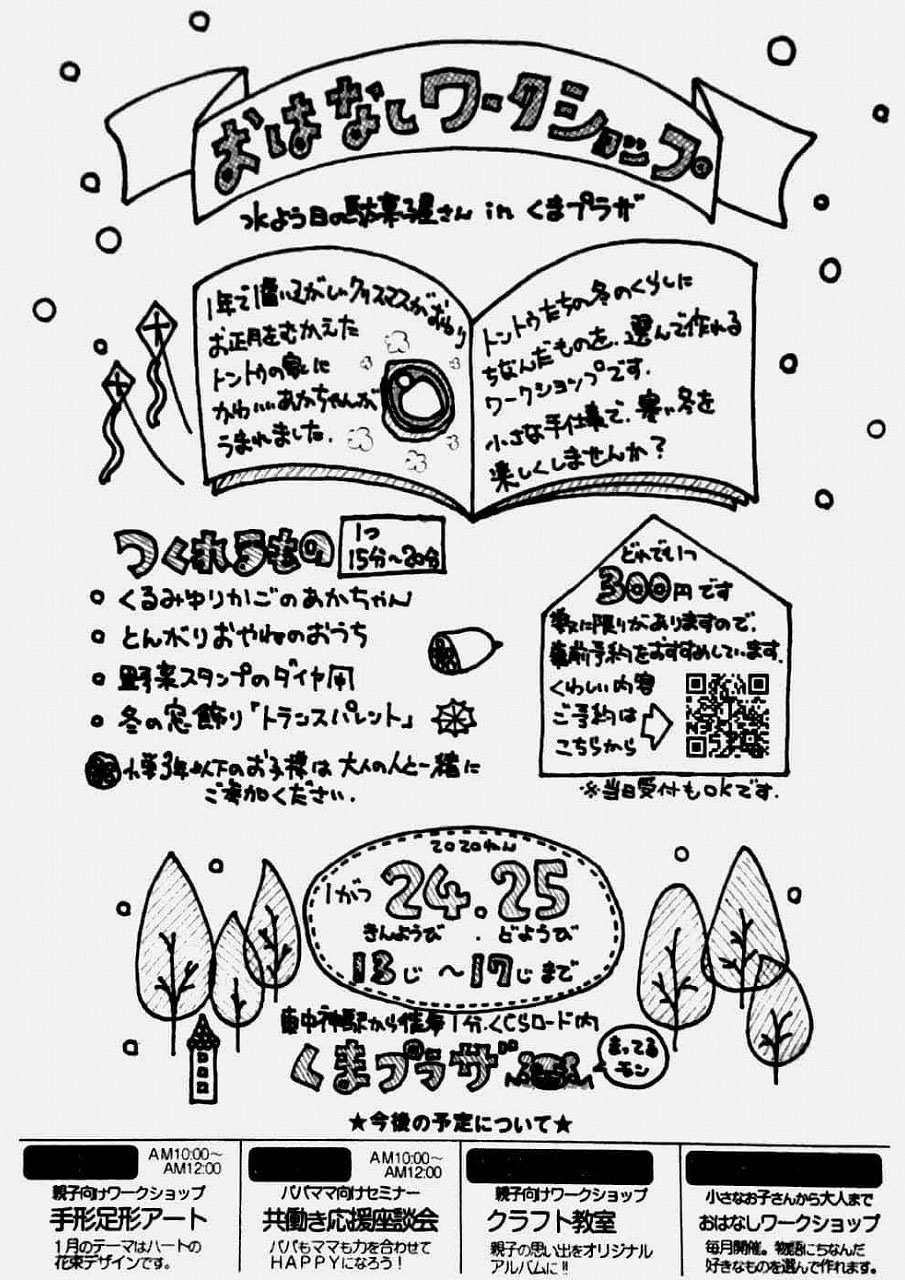 おはなしワークショップ
水よう日の駄菓子屋さん in くまプラザ
1年で1番いそがしいクリスマスがおわり
お正月をむかえた
トントゥの家に
かわいいあかちゃんが
うまれました.
トントゥたちの冬のくらしに
ちなんだものを、選んで作れる
ワークショップです.
小さな手仕事で、寒い冬を
楽しくしませんか?
つくれるもの
1つ
15分〜20分
くるみゆりかごのあかちゃん
とんがりおやねのおうち
野菜スタンプのダイヤ凧
冬の窓飾り「トランスパレント」
小学3年以下のお子様は大人の人と一緒に
ご参加ください.
どれでも1つ
300円です
数に限りがありますので、
事前予約をおすすめしています.
くわしい内容
ご予約は
こちらから
※当日受付もOKです.
2020ねん
1がつ 24.25
きんようび . どようび
13じ 〜17じまで
東中神駅から徒歩1分.くじらロード内
くまプラザ
まってる
モン
★今後の予定について★
AM10:00〜
AM12:00
親子向けワークショップ
手形足形アート
1月のテーマはハートの
花束デザインです。
AM10:00〜
AM12:00
パパママ向けセミナー
共働き応援座談会
パパもママも力を合わせて
HAPPYになろう!
親子向けワークショップ
クラフト教室
親子の思い出をオリジナル
アルバムに!!
小さなお子さんから大人まで
おはなしワークショップ
毎月開催。物語にちなんだ
好きなものを選んで作れます。